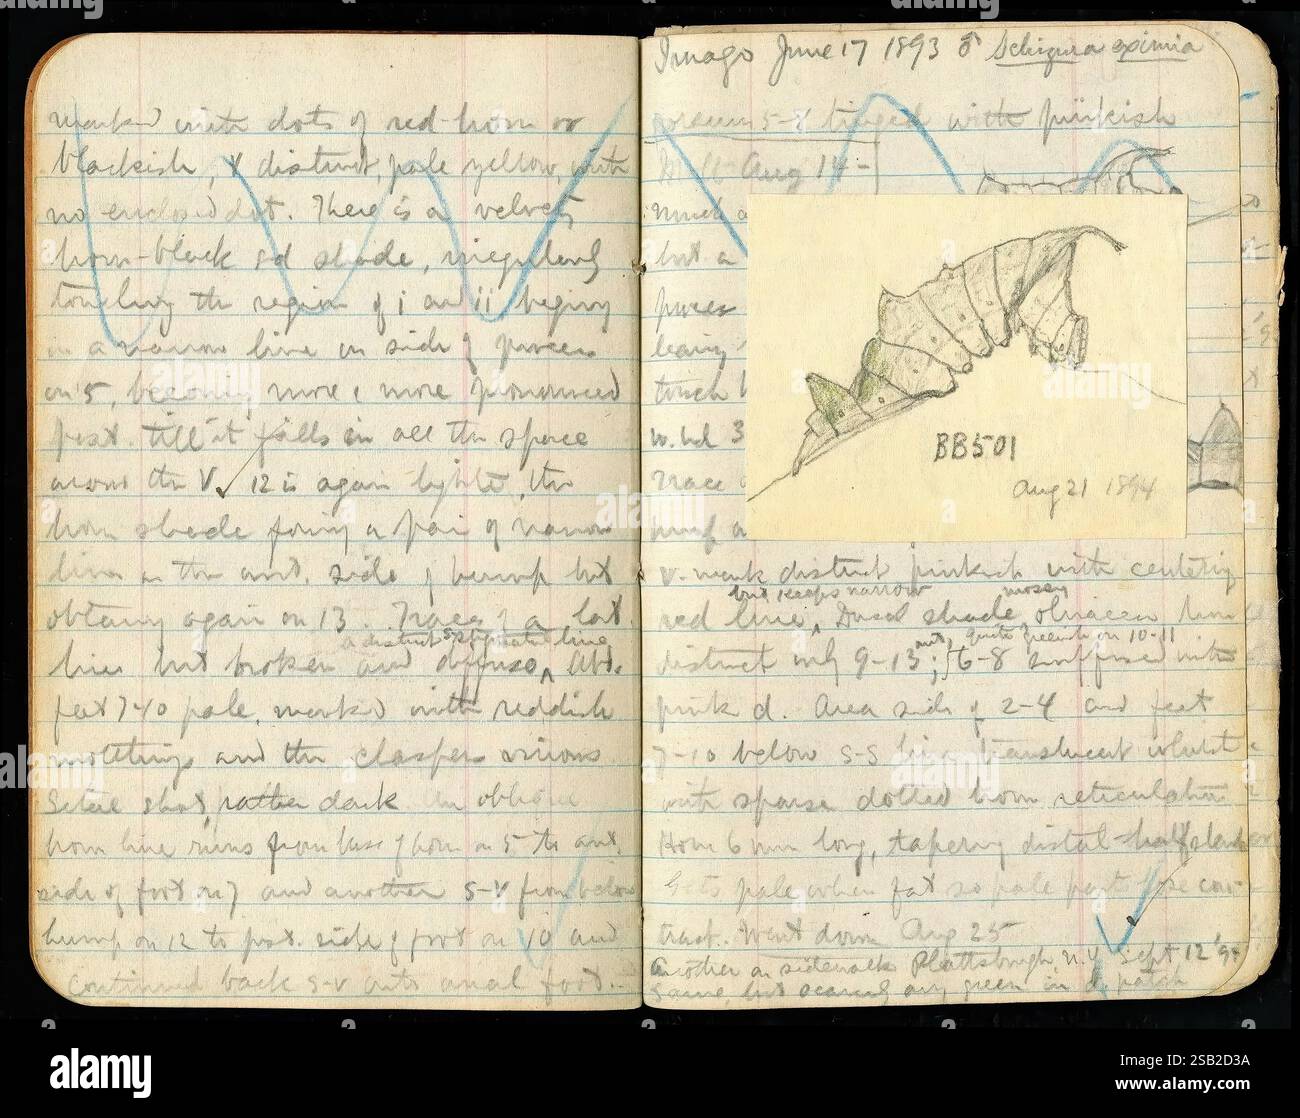 marked with dots of red-brown or
blackish, V distinct, pale yellow, with
no enclosed dot. There is a velvety
brown-black sd shade, irregularly
touching the region of i and ii begins
in a narrow line on side of process
on 5, becoming more & more pronounced
post. till it falls in all the space
across the V. 12 is again lighter, the
brown shade forming a pair of narrow
lines on the ant. side of hump but
obtains again on 13. Traces of a lat.
a distinct substigmatal line
line but broken and diffuse, Abd.
feet 7-10 pale, marked with reddish
mottlings and the claspers vinous.
Setae short, rather dark. An oblique
brown line runs from base of horn on 5 to ant.
side of foot on 7 and another s-v from below
hump on 12 to post. side of foot on 10 and
continued back s-v onto anal foot.
Imago June 17 1893 ♂ Schizura eximia
5-8 tinged with pinkish
Molt Aug 14-
much a
but a
process
leaving
touch
w. hd 3
trace
BB501
Aug 21 1894
V-mark distinct pinkish with centering
but keeps narrow mossy
red line, Dorsal shade olivaceous brown
and quite greenish on 10-11
distinct only 9-13; 6-8 suffused with
pink d. Area side of 2-4 and feet
7-10 below s-s line translucent whitish
with sparse dotted brown reticulation
Horn 6 mm long, tapering distal half slender
Gets pale when fat so pale parts lose con-
trast. Went down Aug 25
Another on sidewalk Plattsburgh, N.Y. Sept 12 '95
Same, but scarcely any green in d. patch